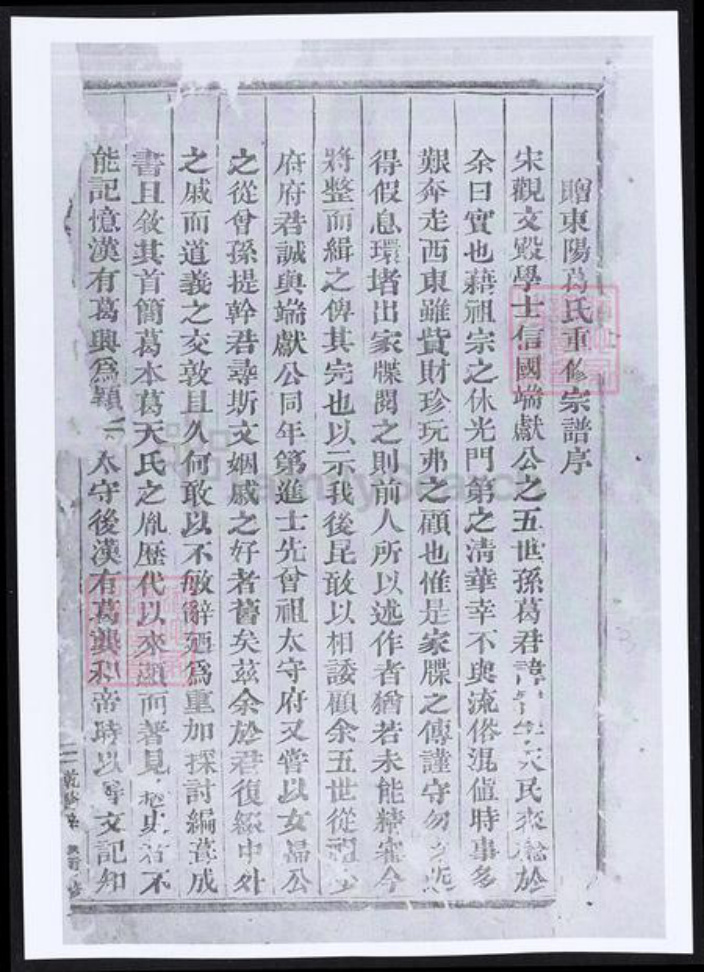 贈東陽葛氏重修宗譜序
宋觀文殿學士信國端獻公之五世孫葛君諱天民來於
余曰實也藉祖宗之休光門第之清華幸不與流俗混值時事多
艱奔走西東雖貲財珍玩弗之顧也惟是家牒之傳謹守勿
得假息環堵出家牒閱之則前人所以述作者猶若未能精審今
將整而緝之俾其完也以示我後昆敢以相諉顧余五世從祖
府府君誠與端獻公同年第進士先曾祖太守府又嘗以女歸公
之從曾孫提幹君尋斯文姻戚之好者舊矣茲余於君復綴中外
之戚而道義之交敦且久何敢以不敏辭廼爲重加探討編葺成
書且敘其首簡葛本葛天氏之胤歷代以來顯而著見若不
能記憶漢有葛興爲潁太守後漢有葛興和帝時以文記知